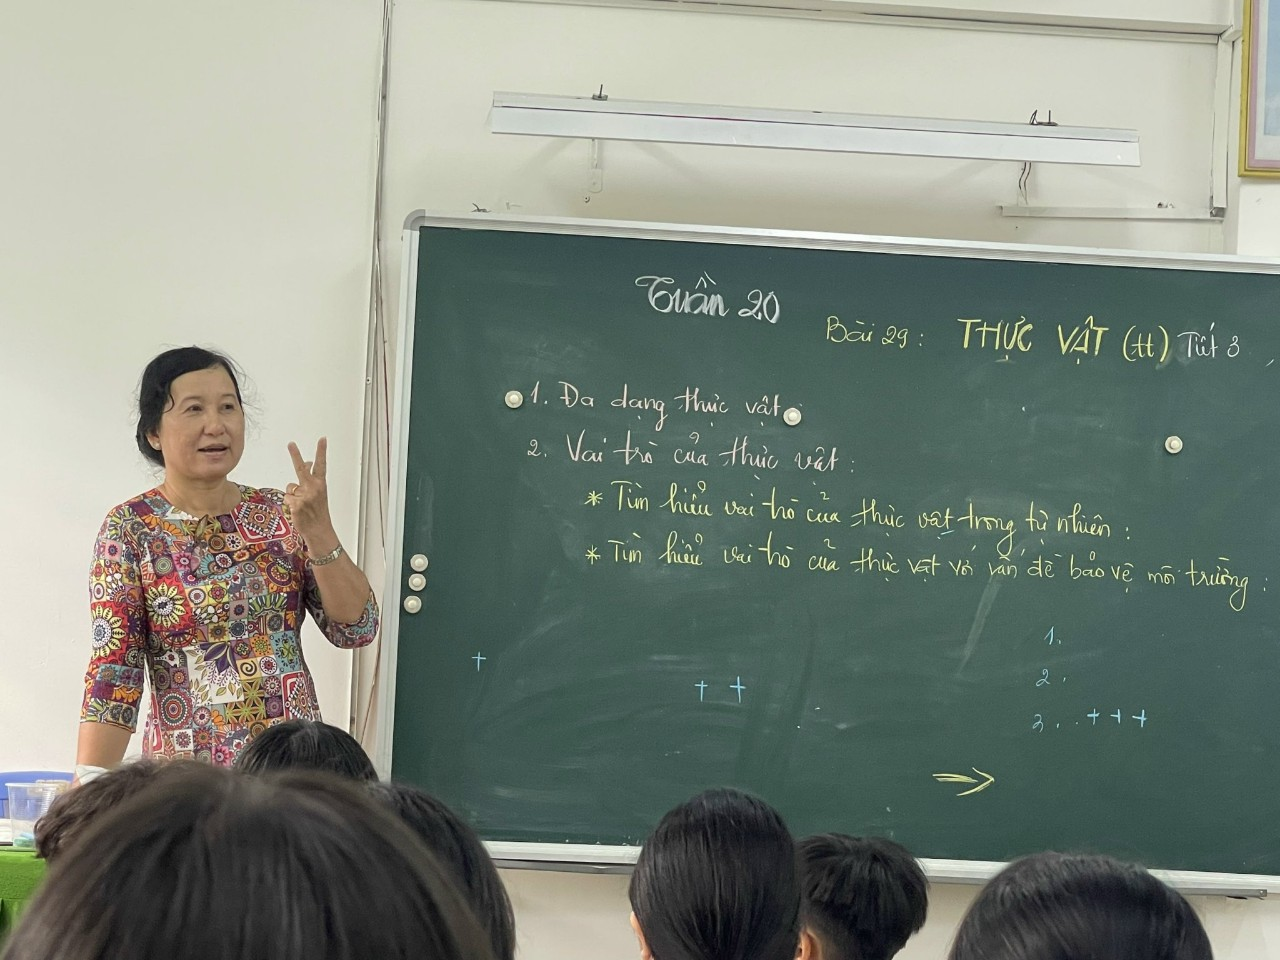 Tuần 20
Bài 29: THỰC VẬT (tt) Tiết 3
1. Đa dạng thực vật
2. Vai trò của thực vật:
* Tìm hiểu vai trò của thực vật trong tự nhiên:
* Tìm hiểu vai trò của thực vật với vấn đề bảo vệ môi trường:
1.
2.
+
+ +
3. . + + +